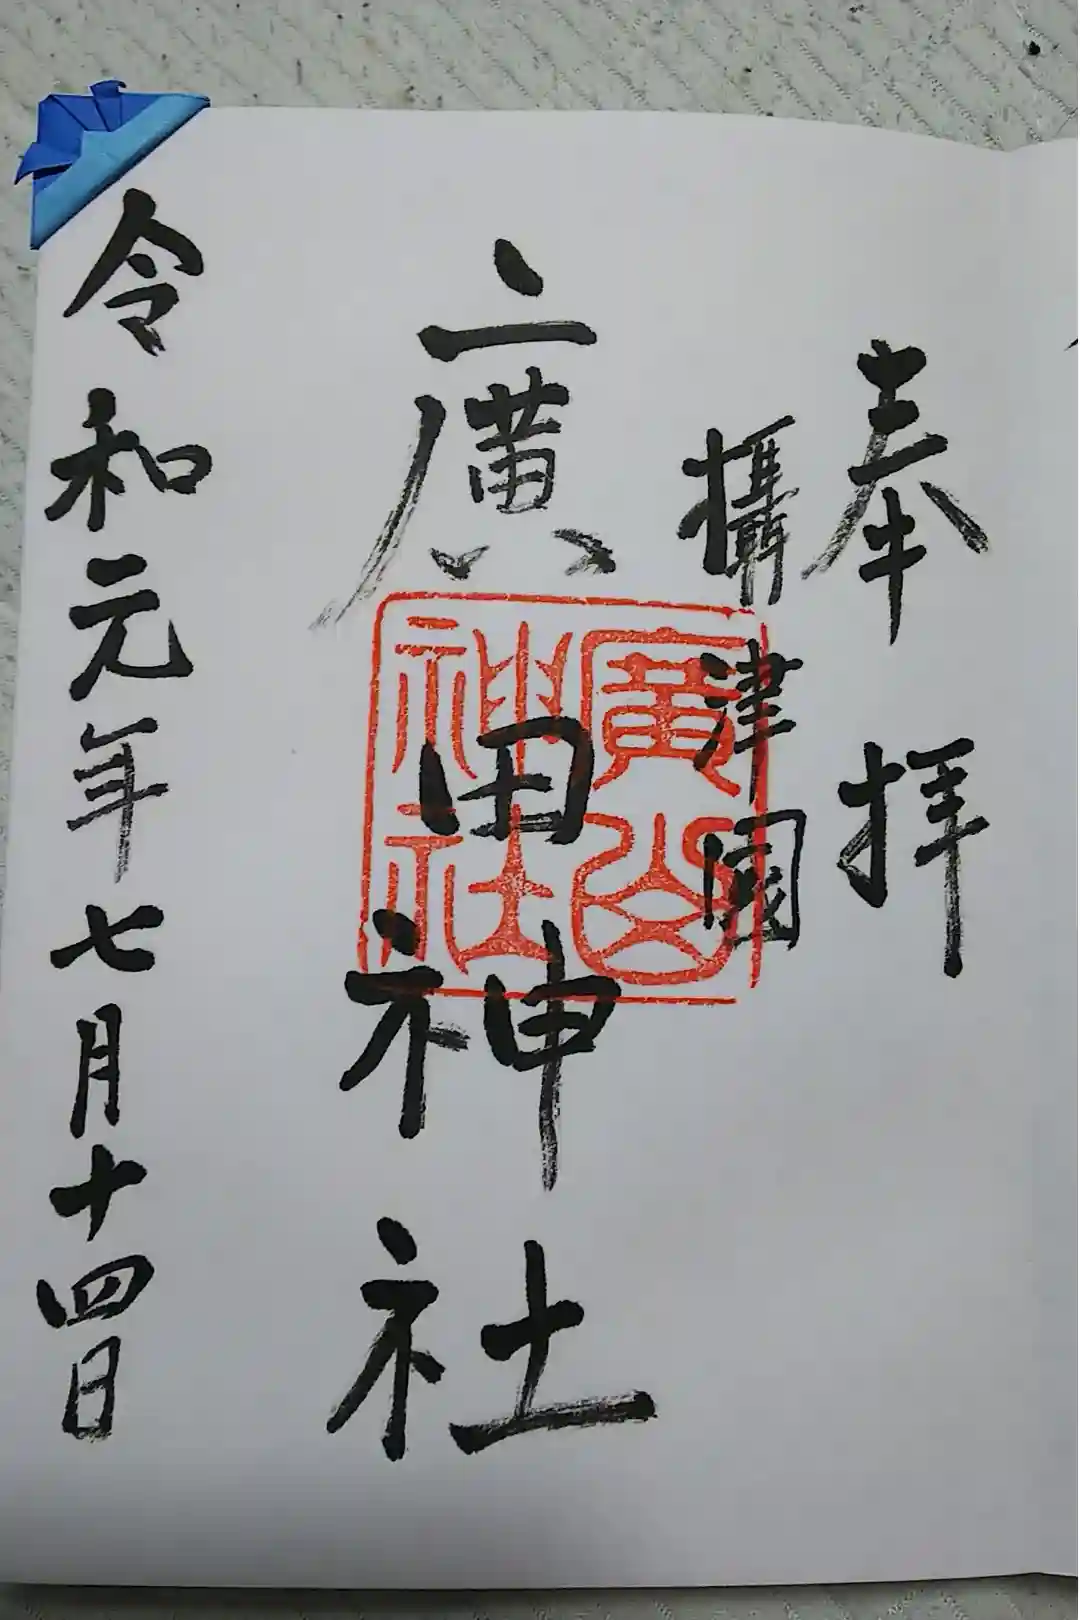 奉拝
攝津國
廣田神社
廣田
神社
令和元年七月十四日